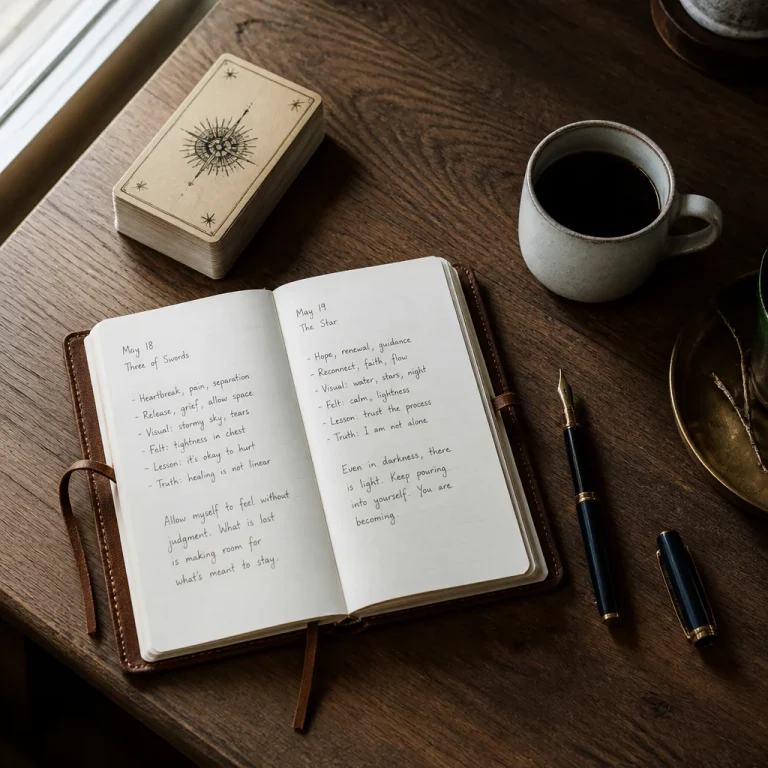 May 18
Three of Swords
- Heartbreak, pain, separation
- Release, grief, allow space
- Visual: stormy sky, tears
- Felt: tightness in chest
- Lesson: it's okay to hurt
- Truth: healing is not linear
Allow myself to feel without
judgment. What is lost
is making room for
what's meant to stay.
May 19
The Star
- Hope, renewal, guidance
- Reconnect, faith, flow
- Visual: water, stars, night
- Felt: calm, lightness
- Lesson: trust the process
- Truth: I am not alone
Even in darkness, there
is light. Keep pouring
into yourself. You are
becoming.